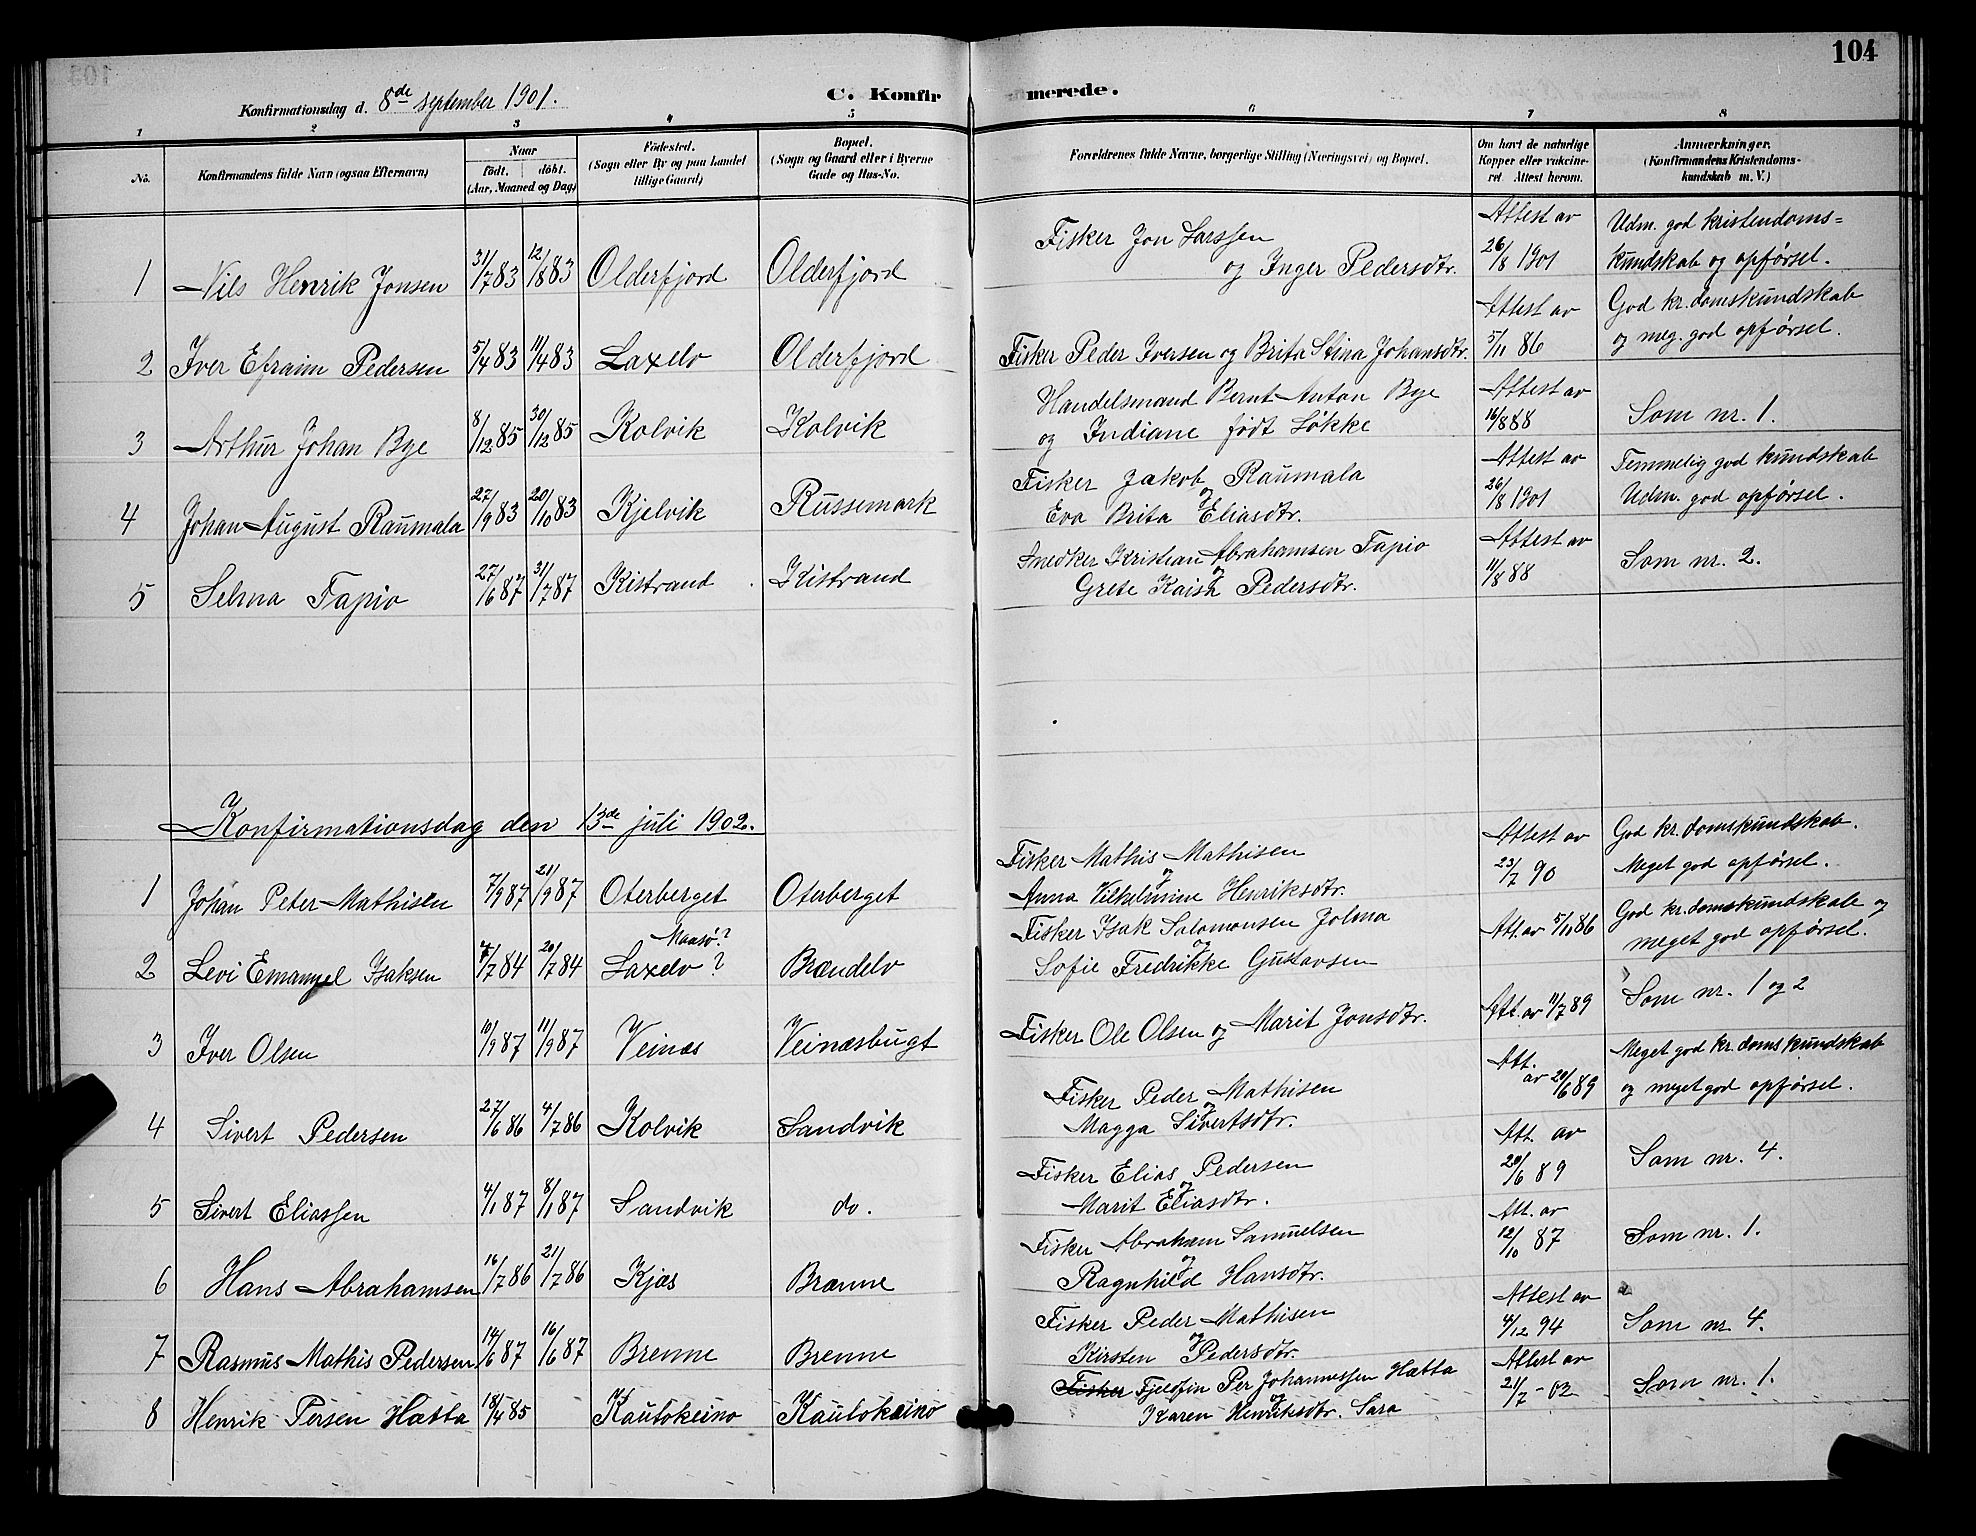 104
Konfirmationsdag d. 8de september 1901.
C. Konfirmerede.
1 2 3 4 5 6 7 8
No.
Konfirmandens fulde Navn (ogsaa Efternavn)
Naar
født. døbt.
(Aar, Maaned og Dag)
Fødested.
(Sogn eller By og paa Landet
tillige Gaard)
Bopæl.
(Sogn og Gaard eller i Byerne
Gade og Hus-No.
Forældrenes fulde Navne, borgerlige Stilling (Næringsvei) og Bopæl.
Om havt de naturlige
Kopper eller vakcine-
ret Attest herom.
Anmærkninger.
(Konfirmandens Kristendoms-
kundskab m. V.)
1 Nils Henrik Jonsen 31/7 83 12/8 83 Olderfjord Olderfjord
Fisker Jon Larssen
og Inger Pedersdtr.
Attest av
26/8 1901
Udm. god kristendoms=
kundskab og opførsel.
2 Iver Efraim Pedersen 5/4 83 11/4 83 Laxelv Olderfjord
Fisker Peder Iversen og Brita Stina Johansdtr.
Attest av
5/11 86
God kr.domskundskab
og meg. god opførsel.
3 Arthur Johan Bye 8/12 85 30/12 85 Kolvik Kolvik
Handelsmand Bernt Anton Bye
og Indiane født Løkke
Attest av
16/8 88
Som nr. 1.
4 Johan August Raumala 27/9 83 20/10 83 Kjelvik Russemark
Fisker Jakob Raumala
og
Eva Brita Eliasdtr.
Attest av
26/8 1901
Temmelig god kundskab
Udm. god opførsel.
5 Selma Tapio 27/6 87 31/7 87 Kistrand Kistrand
Snedker Kristian Abrahamsen Tapio
og
Grete Kaisa Pedersdtr.
Attest av
11/8 88
Som nr. 2.
Konfirmationsdag den 13de juli 1902.
1 Johan Peter Mathisen 7/9 87 21/9 87 Oterberget Oterberget
Fisker Mathis Mathisen
og
Anna Vilhelmine Henriksdtr.
Attest av
23/7 90
God kr.domskundskab.
Meget god opførsel.
2 Levi Emanuel Isaksen 4/7 84 20/7 84 Maasø? Laxelv? Brændelv
Fisker Isak Salomonsen Jolma
og
Sofie Fredrikke Gustavsen
Att. av 5/11 86
God kr.domskundskab og
meget god opførsel.
3 Iver Olsen 10/9 87 11/9 87 Veinæs Veinæsbugt
Fisker Ole Olsen og Marit Jonsdtr.
Att. av 11/7 89
Som nr. 1 og 2
4 Sivert Pedersen 27/6 86 4/7 86 Kolvik Sandvik
Fisker Peder Mathisen
og
Magga Sivertsdtr.
Att.
av 20/6 89
Meget god kr.doms kundskab
og meget god opførsel.
5 Sivert Eliassen 4/1 87 8/1 87 Sandvik do.
Fisker Elias Pedersen
og
Marit Eliasdtr.
Att. av
20/6 89
Som nr. 4.
6 Hans Abrahamsen 16/7 86 21/7 86 Kjæs Brænne
Fisker Abraham Samuelsen
og
Ragnhild Hansdtr.
Att. av
12/10 87
Som nr. 1.
7 Rasmus Mathis Pedersen 14/6 87 16/6 87 Brenne Brenne
Fisker Peder Mathisen
og
Kirsten Pedersdtr.
Attest av
4/12 94
Som nr. 4.
8 Henrik Persen Hætta 18/4 85 Kautokeino Kautokeino
Fisker Fjeldfin Per Johannessen Hætta
og
Karen Henriksdtr. Sara
Attest av
21/7 - 02
Som nr. 1.